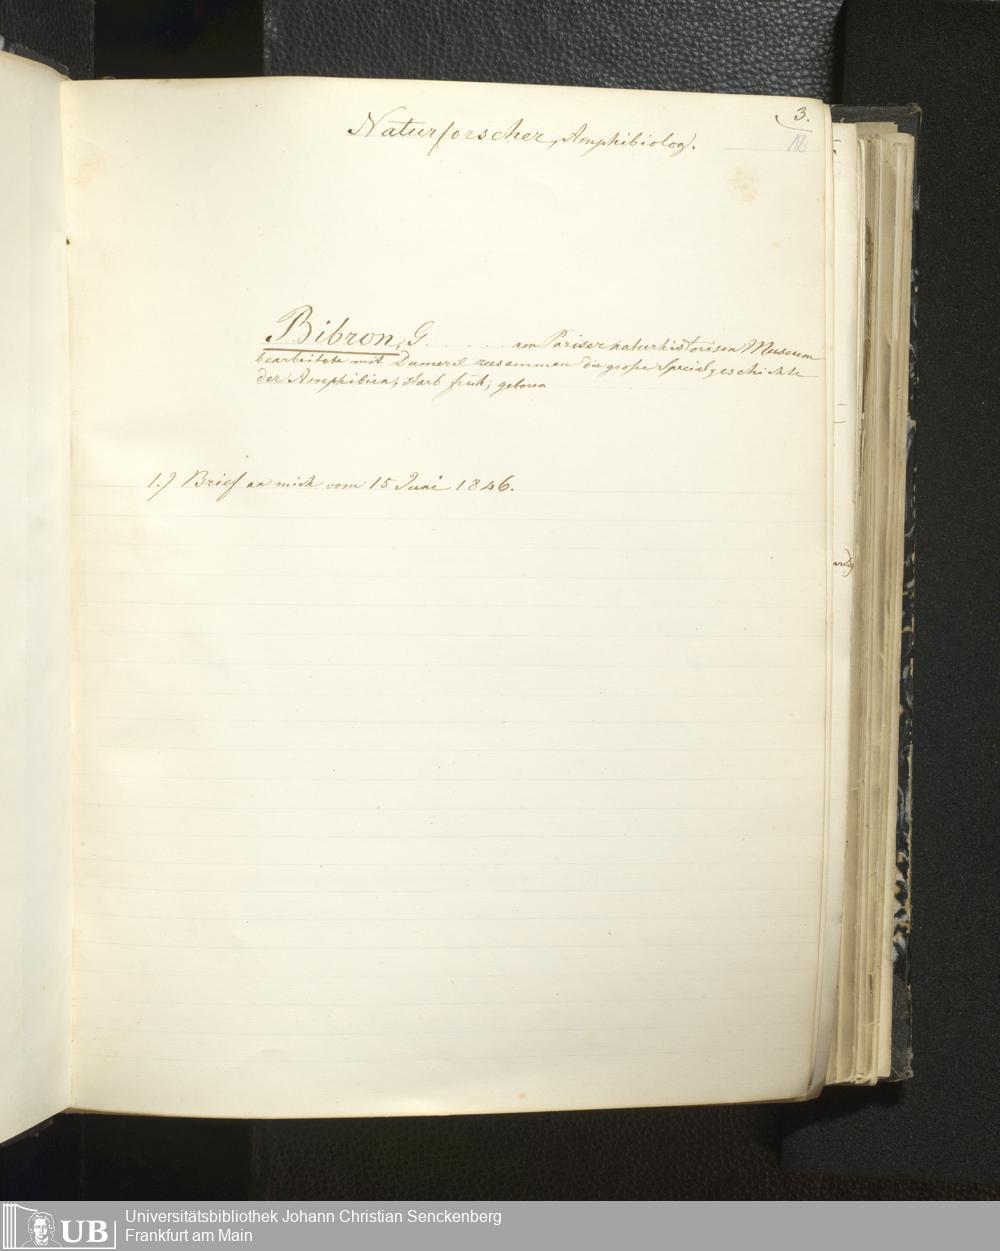 3.
18
Naturforscher, Amphibiolog.
Bibron, G. . . . . . . am Pariser naturhistorisen Museum
bearbeitete mit Dumeril zusammen die große Specialgeschichte
der Amphibien; starb früh; geboren
1.) Brief an mich vom 15 Juni 1846.
UB
Universitätsbibliothek Johann Christian Senckenberg
Frankfurt am Main